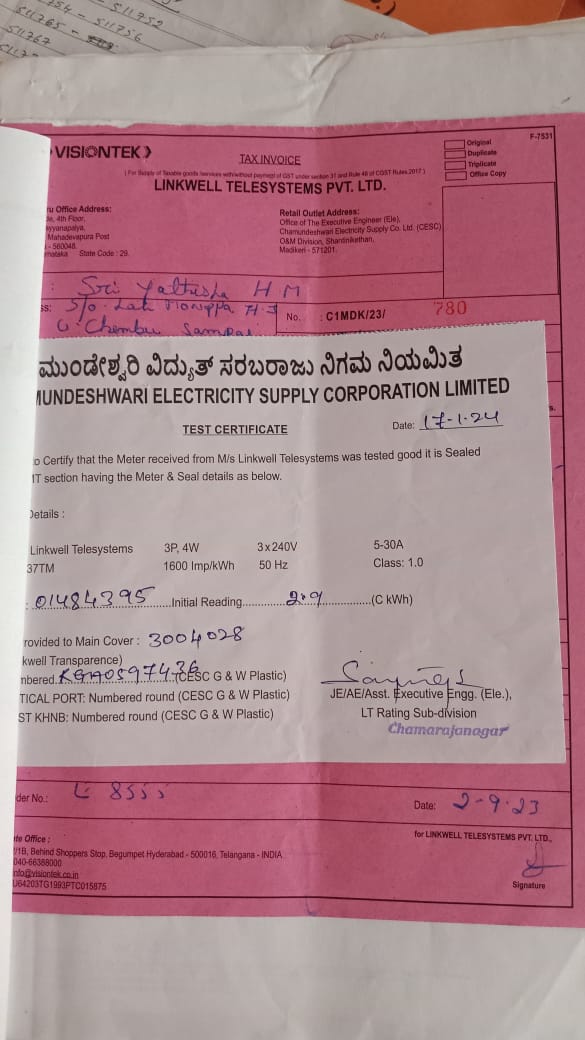 511752
511756
511765 -
511767
F-7531
VISIONTEK
TAX INVOICE
Original
Duplicate
Triplicate
Office Copy
(For Supply of Taxable goods /services with/without payment of GST under section 31 and Rule 46 of CGST Rules 2017)
LINKWELL TELESYSTEMS PVT. LTD.
ru Office Address:
4th Floor,
ayyanapalya,
Mahadevapura Post
- 560048.
rnataka State Code : 29.
Retail Outlet Address:
Office of The Executive Engineer (Ele),
Chamundeshwari Electricity Supply Co. Ltd. (CESC)
O&M Division, Shantinikethan,
Madikeri - 571201.
: Sri H M
ss: S/o. H.J
No. : C1MDK/23/ 780
Chembu
ಮುಂಡೇಶ್ವರಿ ವಿದ್ಯುತ್ ಸರಬರಾಜು ನಿಗಮ ನಿಯಮಿತ
MUNDESHWARI ELECTRICITY SUPPLY CORPORATION LIMITED
TEST CERTIFICATE
Date: 17-1-24
o Certify that the Meter received from M/s Linkwell Telesystems was tested good it is Sealed
IT section having the Meter & Seal details as below.
Details :
Linkwell Telesystems 3P, 4W 3x240V 5-30A
37TM 1600 Imp/kWh 50 Hz Class: 1.0
: 01484395 Initial Reading 2.9 (C kWh)
rovided to Main Cover : 3004028
kwell Transparence)
nbered. (CESC G & W Plastic)
TICAL PORT: Numbered round (CESC G & W Plastic)
ST KHNB: Numbered round (CESC G & W Plastic)
JE/AE/Asst. Executive Engg. (Ele.),
LT Rating Sub-division
Chamarajanagar
der No.:
Date: 2-9-23
te Office :
/1B, Behind Shoppers Stop, Begumpet Hyderabad - 500016, Telangana - INDIA.
040-66388000
nfo@visiontek.co.in
U64203TG1993PTC015875
for LINKWELL TELESYSTEMS PVT. LTD.,
Signature